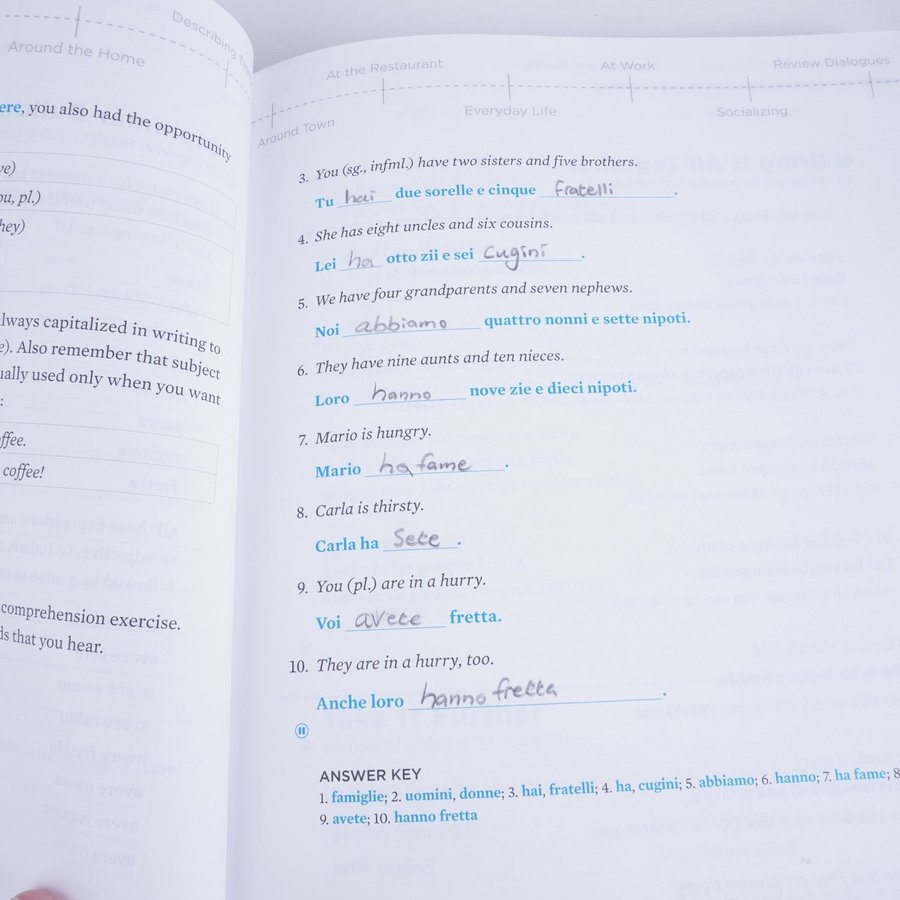 Around the Home
Describing
ere, you also had the opportunity
ve)
ou, pl.)
hey)
always capitalized in writing to
e). Also remember that subject
ually used only when you want
:
ffee.
coffee!
comprehension exercise.
ds that you hear.
At the Restaurant
At Work
Review Dialogues
Around Town
Everyday Life
Socializing
3. You (sg., infml.) have two sisters and five brothers.
Tu hai due sorelle e cinque fratelli.
4. She has eight uncles and six cousins.
Lei ha otto zii e sei cugini.
5. We have four grandparents and seven nephews.
Noi abbiamo quattro nonni e sette nipoti.
6. They have nine aunts and ten nieces.
Loro hanno nove zie e dieci nipoti.
7. Mario is hungry.
Mario ha fame.
8. Carla is thirsty.
Carla ha Sete.
9. You (pl.) are in a hurry.
Voi avete fretta.
10. They are in a hurry, too.
Anche loro hanno fretta.
ANSWER KEY
1. famiglie; 2. uomini, donne; 3. hai, fratelli; 4. ha, cugini; 5. abbiamo; 6. hanno; 7. ha fame; 8
9. avete; 10. hanno fretta